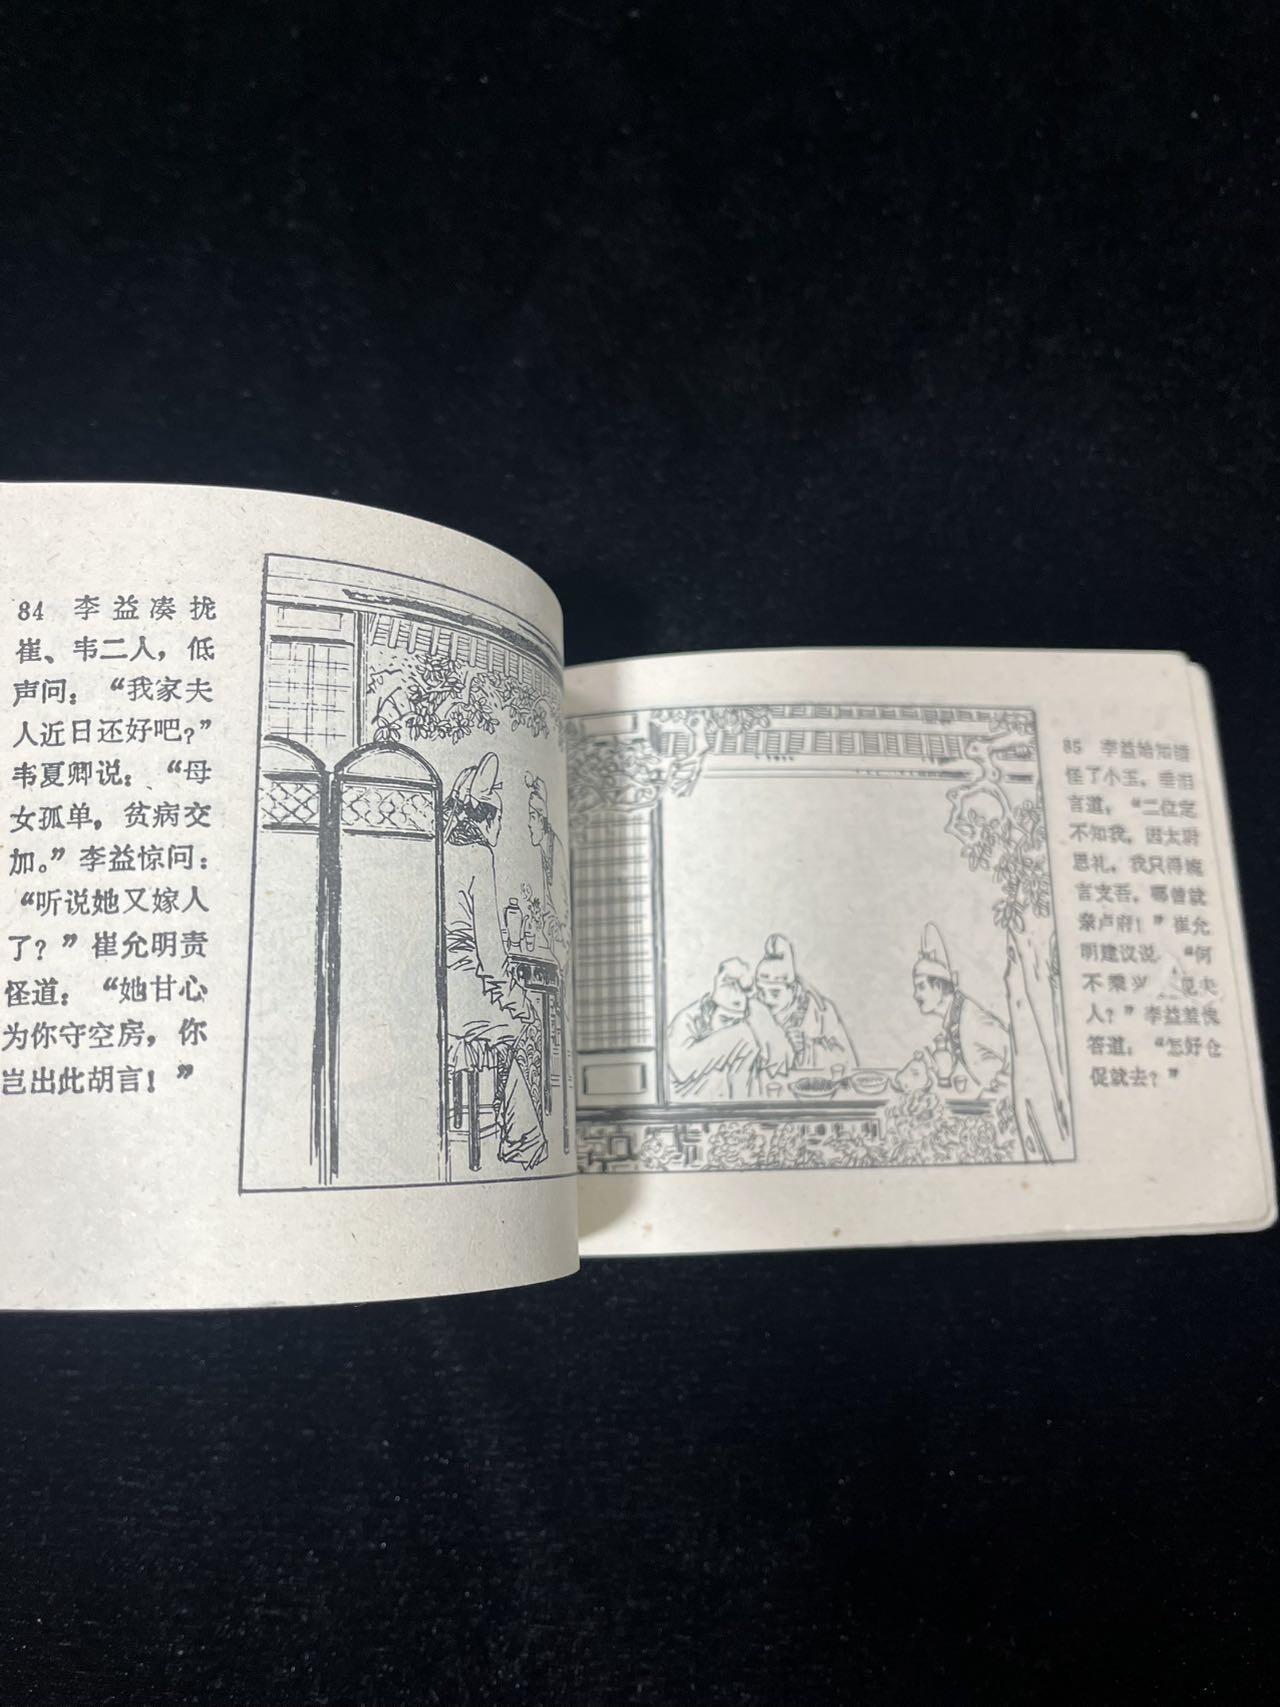 84 李益凑拢
崔、韦二人，低
声问：“我家夫
人近日还好吧？”
韦夏卿说：“母
女孤单，贫病交
加。”李益惊问：
“听说她又嫁人
了？”崔允明责
怪道：“她甘心
为你守空房，你
岂出此胡言！”
85 李益始知错
怪了小玉，垂泪
言道，“二位定
不知我，因太尉
恩礼，我只得婉
言支吾，哪曾就
亲卢府！”崔允
明建议说 “何
不乘兴 见夫
人？”李益羞愧
答道：“怎好仓
促就去？”